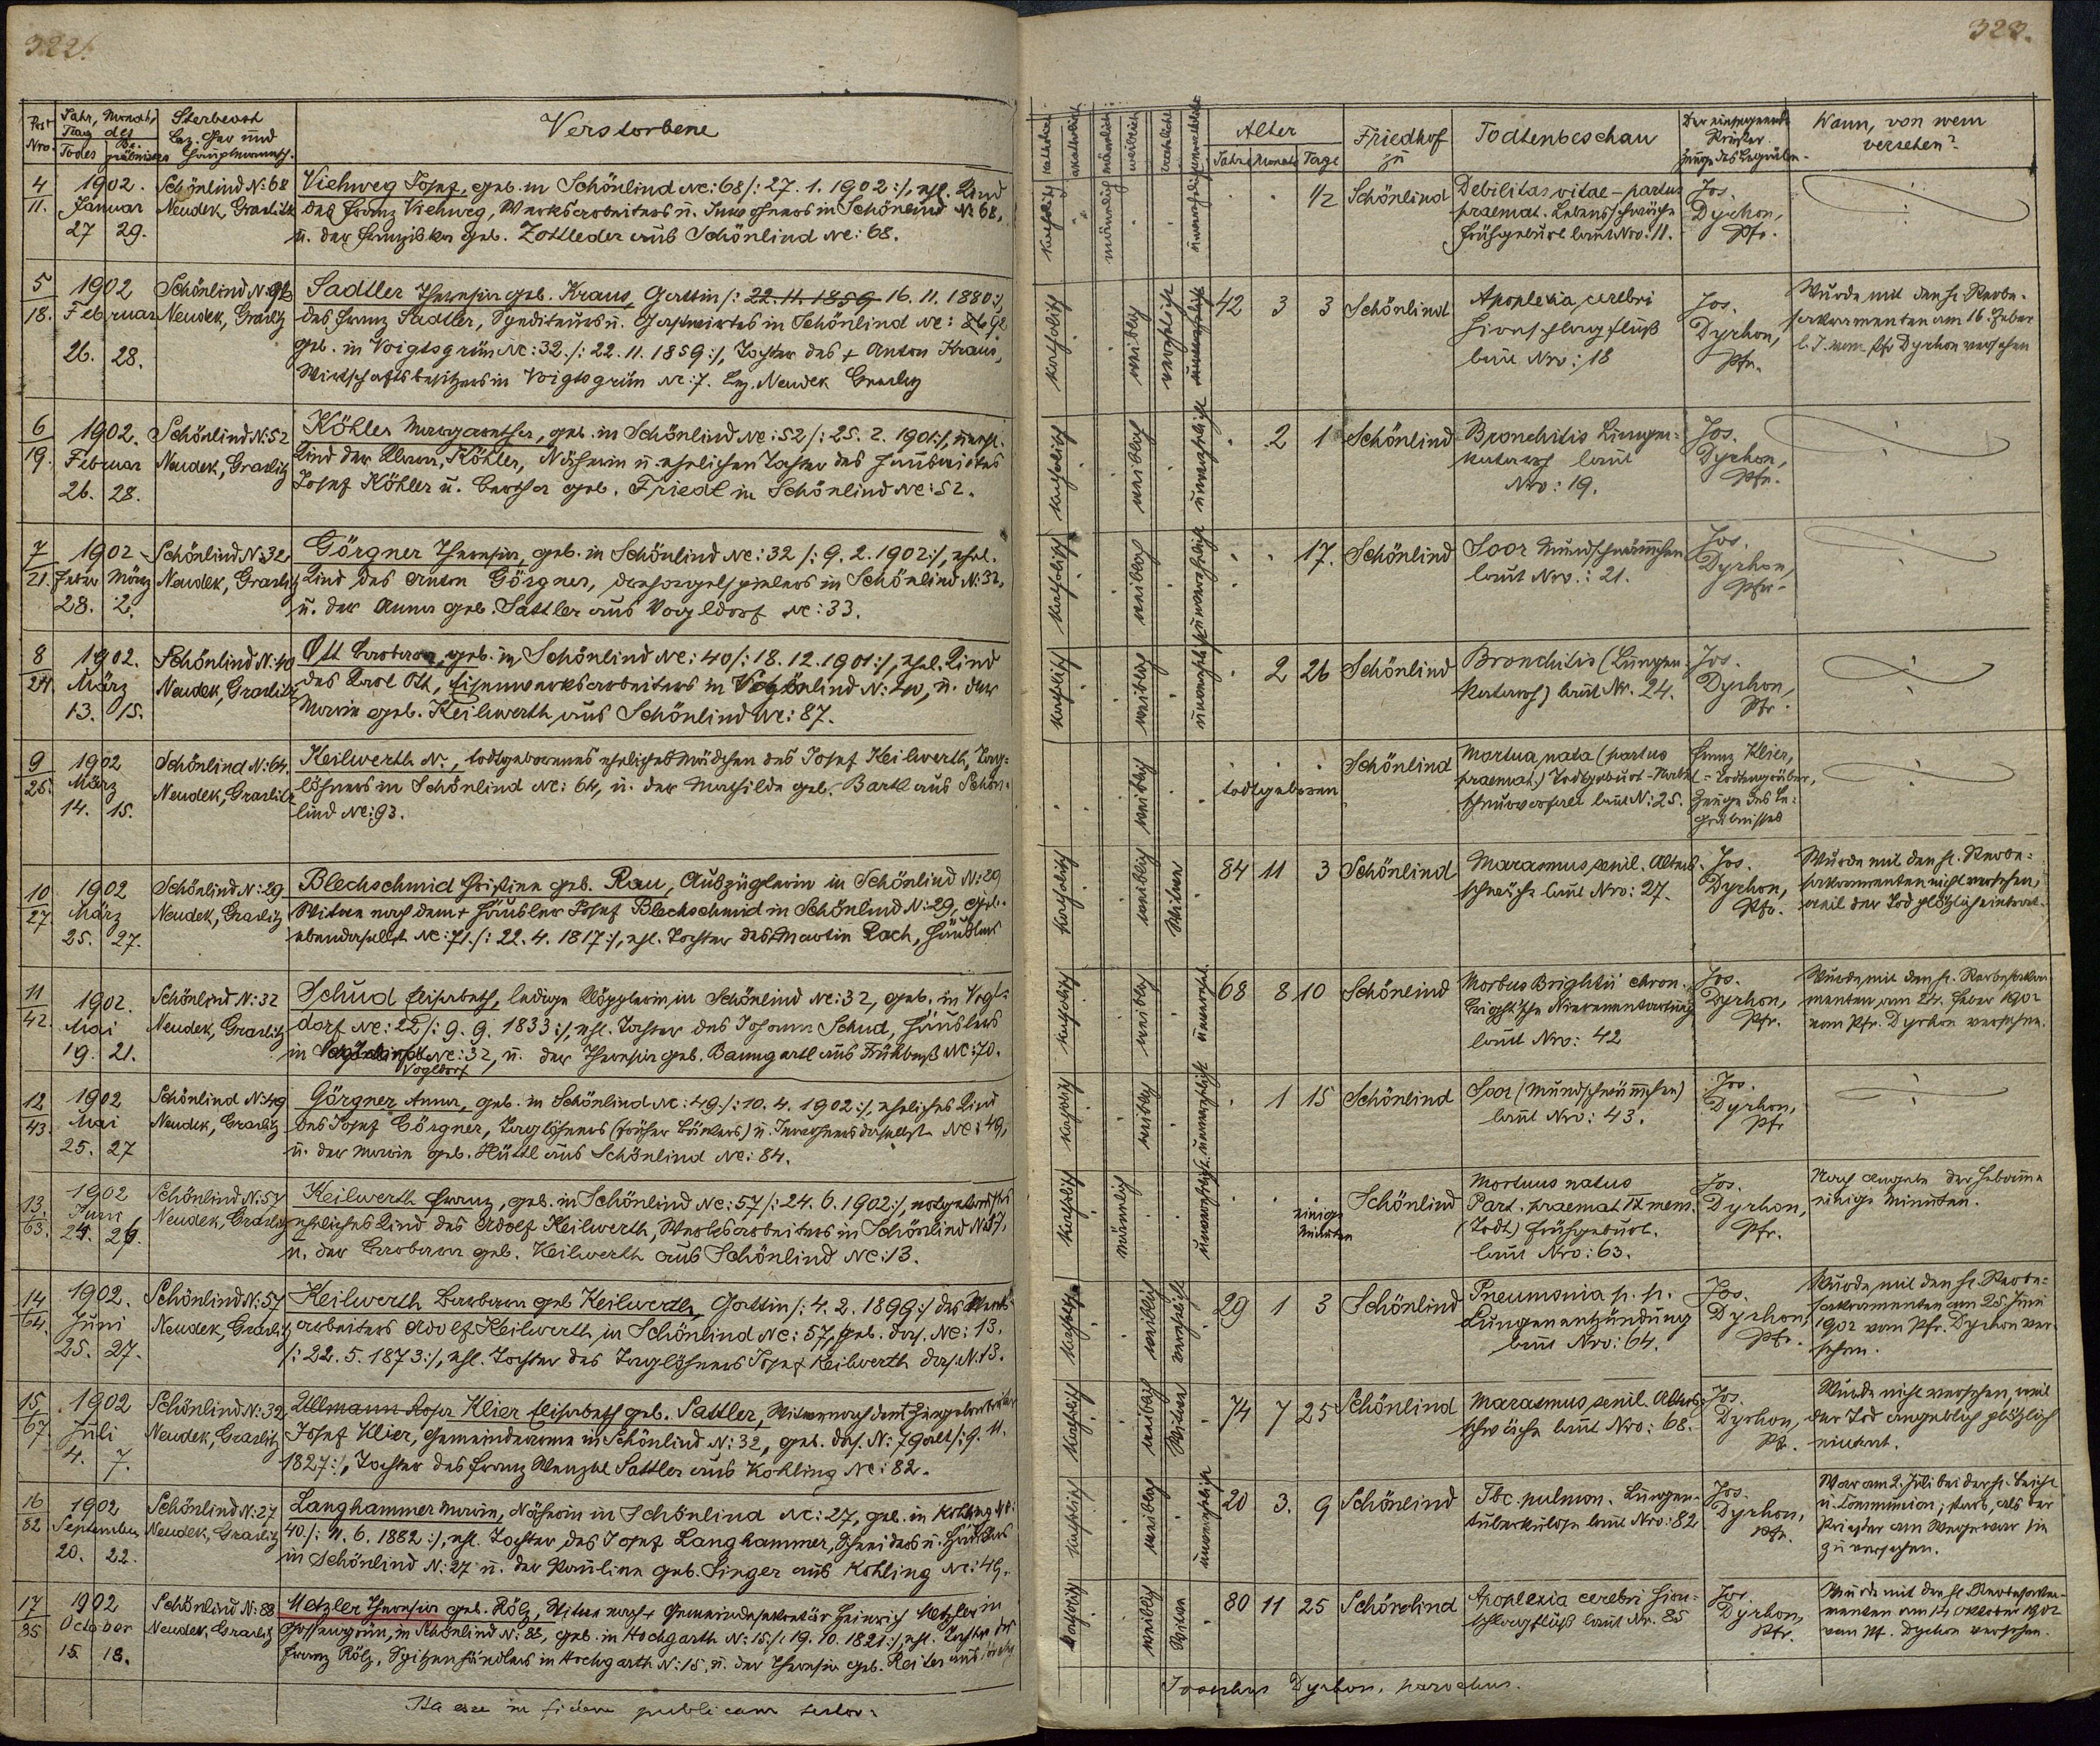 322.
Post Nro.
Jahr, Monat,
Tag des
Todes
Be-
gräbnisses
Sterbeort
Bez. Ger und
Hauptmannsch.
Verstorbene
4
11.
1902.
Januar
27 29.
Schönlind N: 68
Neudek, Graslitz
Viehweg Josef, geb. in Schönlind Nc: 68 /: 27. 1. 1902 :/, ehl. Kind
des Franz Viehweg, Werksarbeiters u. Inwohners in Schönlind N: 68,
u. der Franziska geb. Zottleder aus Schönlind Nc: 68.
5
18.
1902
Februar
26. 28.
Schönlind N: 92
Neudek, Graslitz
Sadtler Theresia geb. Kraus, Gattin /: 22. 11. 1859 16. 11. 1880 :/,
des Franz Sadtler, Spediteurs u. Gastwirtes in Schönlind Nc: 92
geb. in Voigtsgrün Nc: 32. /: 22. 11. 1859 :/, Tochter des + Anton Kraus,
Wirtschaftsbesitzers in Voigtsgrün Nc: 7. Bez. Neudek Graslitz
6
19.
1902.
Februar
26. 28.
Schönlind N: 52
Neudek, Graslitz
Köhler Margaretha, geb. in Schönlind Nc: 52 /: 25. 2. 1901 :/, unehl.
Kind der Anna Köhler, Näherin u. ehelichen Tochter des
Josef Köhler u. Bertha geb. Friedl in Schönlind Nc: 52.
7
21.
1902
Feber März
28. 2.
Schönlind N: 32
Neudek, Graslitz
Görgner Theresia, geb. in Schönlind Nc: 32 /: 9. 2. 1902 :/, ehel.
Kind des Anton Görgner, Drehorgelspielers in Schönlind N: 32,
u. der Anna geb. Sattler aus Vogldorf Nc: 33.
8
24.
1902.
März
13. 15.
Schönlind N: 40
Neudek, Graslitz
Ott Barbara, geb. in Schönlind Nc: 40 /: 18. 12. 1901 :/, ehel. Kind
des Karl Ott, Eisenwerksarbeiters in Schönlind N: 40, u. der
Maria geb. Keilwerth aus Schönlind Nc: 87.
9
25.
1902
März
14. 15.
Schönlind N: 64.
Neudek, Graslitz
Keilwerth N., todtgeborenes eheliches Mädchen des Josef Keilwerth, Tag-
löhners in Schönlind Nc: 64, u. der Mathilde geb. Bartl aus Schön-
lind Nc: 93.
10
27.
1902
März
25. 27.
Schönlind N: 29
Neudek, Graslitz
Blechschmid Christina geb. Rau, Auszüglerin in Schönlind N: 29
Witwe nach dem + Häusler Josef Blechschmid in Schönlind N: 29, geb.
ebendaselbst Nc: 71. /: 22. 4. 1817 :/, ehl. Tochter des + Martin Rach, Häuslers
11
42.
1902.
Mai
19. 21.
Schönlind N: 32
Neudek, Graslitz
Schud Elisabeth, ledige Klöpplerin in Schönlind Nc: 32, geb. in Vogl-
dorf Nc: 22 /: 9. 9. 1833 :/, ehl. Tochter des Johann Schud, Häuslers
in Nc: 32, u. der Theresia geb. Baumgartl aus Frühbuß Nc: 70.
Vogldorf
12
43.
1902
Mai
25. 27
Schönlind N: 49
Neudek, Graslitz
Görgner Anna, geb. in Schönlind Nc: 49. /: 10. 4. 1902 :/, eheliches Kind
des Josef Görgner, Taglöhners (früher Bäckers) u. Inwohners daselbst Nc: 49,
u. der Maria geb. Hüttl aus Schönlind Nc: 84.
13.
63.
1902
Juni
24. 26.
Schönlind N: 57
Neudek, Graslitz
Keilwerth Franz, geb. in Schönlind Nc: 57 /: 24. 6. 1902 :/, notgetauftes
eheliches Kind des Adolf Keilwerth, Werksarbeiters in Schönlind N: 57,
u. der Barbara geb. Keilwerth aus Schönlind Nc: 13.
14
64.
1902.
Juni
25. 27.
Schönlind N: 57
Neudek, Graslitz
Keilwerth Barbara geb Keilwerth, Gattin /: 4. 2. 1899 :/ des Werks-
arbeiters Adolf Keilwerth in Schönlind Nc: 57, geb. das. Nc: 13.
/: 22. 5. 1873 :/, ehl. Tochter des Taglöhners Josef Keilwerth das. N: 13.
15.
67.
1902
Juli
4. 7.
Schönlind N: 32
Neudek, Graslitz
Ullmann Rosa Klier Elisabeth geb. Sattler, Witwe nach dem +
Josef Klier, Gemeindearme in Schönlind N: 32, geb. das. N: 7 /: 9. 11.
1827 :/, Tochter des Franz Wenzel Sattler aus Kohling Nc: 82.
16
82
1902
September
20. 22.
Schönlind N: 27
Neudek, Graslitz
Langhammer Maria, Näherin in Schönlind Nc: 27, geb. in Kohling Nc:
40. /: 11. 6. 1882 :/, ehl. Tochter des Josef Langhammer, Schneiders u. Häuslers
in Schönlind N: 27 u. der Paulina geb. Singer aus Kohling Nc: 49.
17
85
1902
October
15. 18.
Schönlind N: 88
Neudek, Graslitz
Metzler Theresia geb. Rölz, Witwe nach + Gemeindesekretär Heinrich Metzler in
Gossengrün, in Schönlind N: 88, geb. in Hochgarth N: 15. /: 19. 10. 1821 :/, ehl. Tochter des
Franz Rölz, Spitzenhändlers in Hochgarth N: 15, u. der Theresia geb. Reiter aus
Ita esse in fidem publicam testor:
323.
katholisch
akatholisch
männlich
weiblich
verehlicht
unverehlicht
Alter
Jahre Monate Tage
Friedhof
zu
Todtenbeschau
Der einsegnende
Priester
Zeuge des Begräbn.
Wann, von wem
versehen?
katholisch männlich unverehelicht
1/2 Schönlind
Debilitas vitae – partus
praemat. Lebensschwäche
Frühgeburt laut Nro. 11.
Jos.
Dyrhon,
Pfr.
katholisch weiblich verehelicht
42 3 3 Schönlind
Apoplexia cerebri
Hirnschlagfluß
laut Nro: 18
Jos.
Dyrhon,
Pfr.
Wurde mit den hl. Sterbe-
sakramenten am 16. Feber
l. J. vom Pfr Dyrhon versehen
katholisch weiblich unverehelicht
2 1 Schönlind
Bronchitis Lungen-
katarrh laut
Nro: 19.
Jos.
Dyrhon,
Pfr.
katholisch weiblich unverehelicht
17. Schönlind
Soor Mundschwämmchen
laut Nro.: 21.
Jos.
Dyrhon,
Pfr.
katholisch weiblich unverehelicht
2 26 Schönlind
Bronchitis (Lungen-
katarrh) laut Nr. 24.
Jos.
Dyrhon,
Pfr.
weiblich
todtgeboren
Schönlind
Mortua nata (partus
praemat.) Todtgeburt – Nabel-
schnurvorfall laut N: 25.
Franz Klier,
Todtengräber,
Zeuge des Be-
gräbnisses
katholisch weiblich Witwe
84 11 3 Schönlind
Marasmus senil. Alters-
schwäche laut Nro: 27.
Jos.
Dyrhon,
Pfr.
Wurde mit den hl. Sterbe-
sakramenten nicht versehen,
weil der Tod plötzlich eintrat.
katholisch weiblich unverehel.
68 8 10 Schönlind
Morbus Brightii chron.
Bright'sche Nierenentartung
laut Nro: 42
Jos.
Dyrhon,
Pfr.
Wurde mit den hl. Sterbesakra-
menten am 24. Feber 1902
vom Pfr. Dyrhon versehen.
katholisch weiblich unverehelicht
1 15 Schönlind
Soor (Mundschwämmchen)
laut Nro: 43.
Jos.
Dyrhon,
Pfr
katholisch männlich unverehelicht
einige
Minuten
Schönlind
Mortuus natus
Part. praemat. IX mens.
(Todt) Frühgeburt.
laut Nro: 63.
Jos.
Dyrhon,
Pfr.
Nach Angabe der Hebamme
einige Minuten.
katholisch weiblich verehelicht
29 1 3 Schönlind
Pneumonia p. p.
Lungenentzündung
laut Nro: 64.
Jos.
Dyrhon,
Pfr.
Wurde mit den hl. Sterbe-
sakramenten am 25 Juni
1902 vom Pfr. Dyrhon ver-
sehen.
katholisch weiblich Witwe
74 7 25 Schönlind
Marasmus senil. Alters-
schwäche laut Nro: 68.
Jos.
Dyrhon,
Pfr.
Wurde nicht versehen, weil
der Tod angeblich plötzlich
eintrat.
katholisch weiblich unverehelicht
20 3. 9 Schönlind
Tbc. pulmon. Lungen-
tuberkulose laut Nro: 82
Jos.
Dyrhon,
Pfr.
War am 2. Juli bei der hl. Beicht
u. Communion; starb, als der
Priester am Wege war sie
zu versehen.
katholisch weiblich Witwe
80 11 25 Schönlind
Apoplexia cerebri Hirn-
schlagfluß laut Nr. 85
Jos.
Dyrhon,
Pfr.
Wurde mit den hl. Sterbesakra-
menten am 14 Oktober 1902
vom Pf. Dyrhon versehen.
Josephus Dyrhon, parochus.